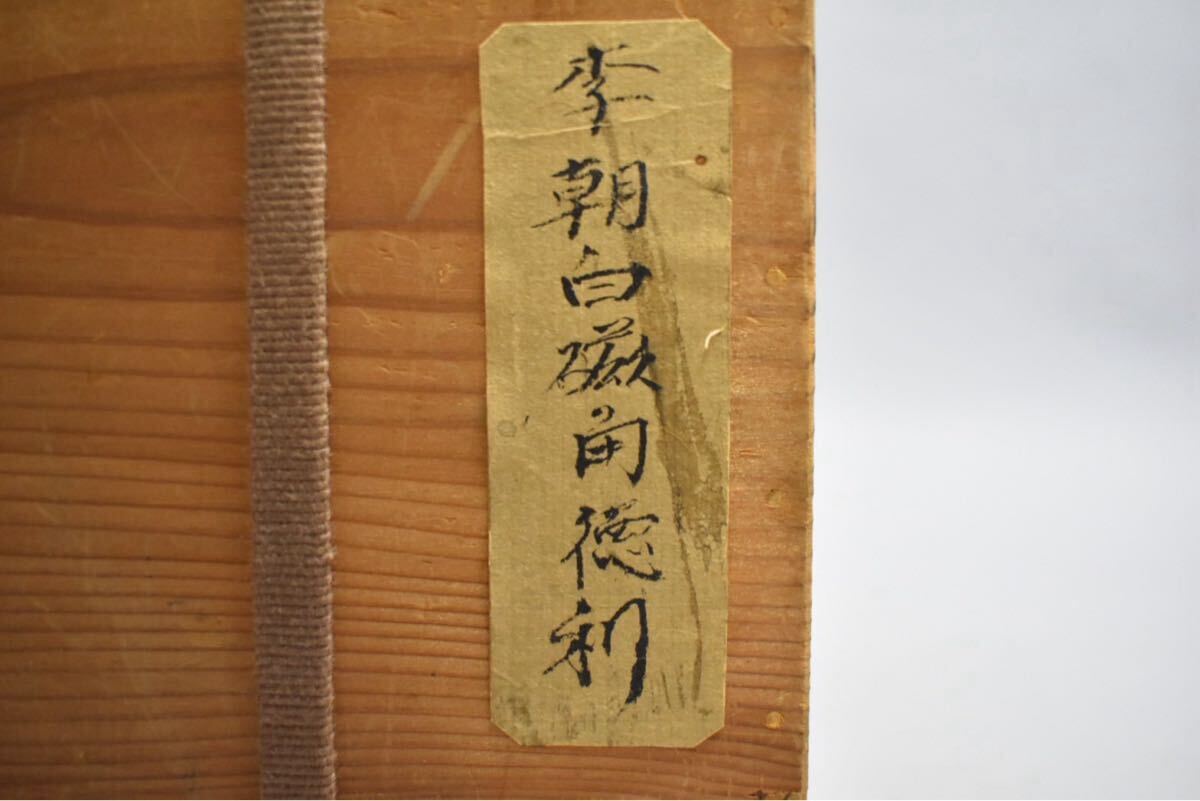 李朝白磁角徳利